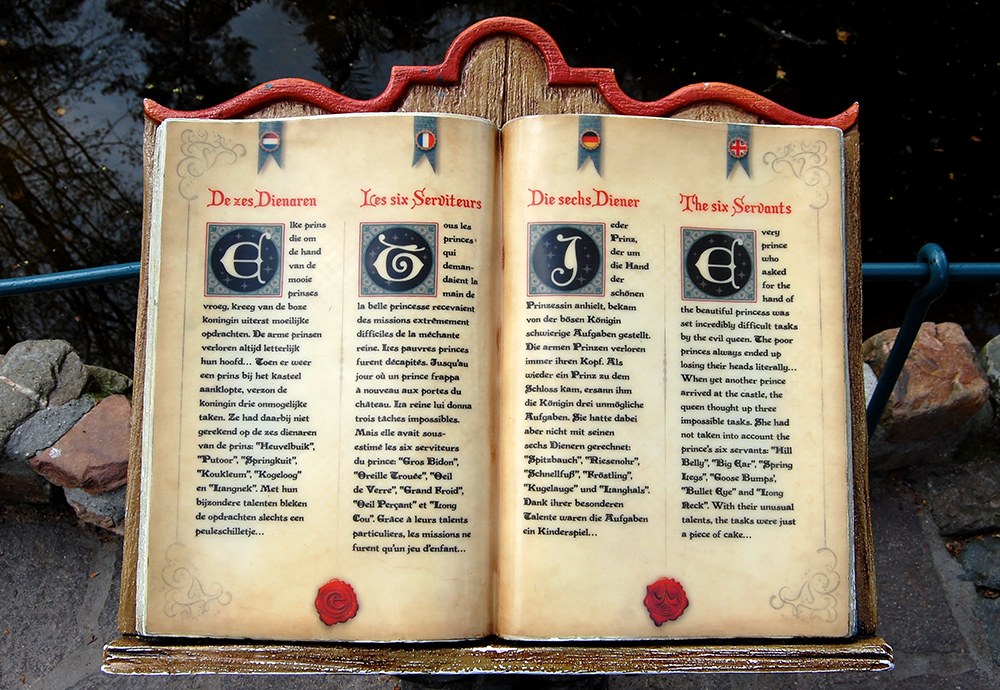 De zes Dienaren
Elke prins
die om
de hand
van de
mooie
prinses
vroeg, kreeg van de boze
koningin uiterst moeilijke
opdrachten. De arme prinsen
verloren altijd letterlijk
hun hoofd... Toen er weer
een prins bij het kasteel
aanklopte, verzon de
koningin drie onmogelijke
taken. Ze had daarbij niet
gerekend op de zes dienaren
van de prins: "Heuvelbuik",
"Putoor", "Springkuit",
"Koukleum", "Kogeloog"
en "Langnek". Met hun
bijzondere talenten bleken
de opdrachten slechts een
peuleschilletje...
Les six Serviteurs
Tous les
princes
qui
deman-
daient la
main de
la belle princesse recevaient
des missions extrêmement
difficiles de la méchante
reine. Les pauvres princes
furent décapités. Jusqu'au
jour où un prince frappa
à nouveau aux portes du
château. La reine lui donna
trois tâches impossibles.
Mais elle avait sous-
estimé les six serviteurs
du prince: "Gros Bidon",
"Oreille Trouée", "Oeil
de Verre", "Grand Froid",
"Oeil Perçant" et "Long
Cou". Grâce à leurs talents
particuliers, les missions ne
furent qu'un jeu d'enfant...
Die sechs Diener
Jeder
Prinz,
der um
die Hand
der
schönen
Prinzessin anhielt, bekam
von der bösen Königin
schwierige Aufgaben gestellt.
Die armen Prinzen verloren
immer ihren Kopf. Als
wieder ein Prinz zu dem
Schloss kam, ersann ihm
die Königin drei unmögliche
Aufgaben. Sie hatte dabei
aber nicht mit seinen
sechs Dienern gerechnet:
"Spitzbauch", "Riesenohr",
"Schnellfuß", "Fröstling",
"Kugelauge" und "Langhals".
Dank ihrer besonderen
Talente waren die Aufgaben
ein Kinderspiel...
The six Servants
Every
prince
who
asked
for the
hand of
the beautiful princess was
set incredibly difficult tasks
by the evil queen. The poor
princes always ended up
losing their heads literally...
When yet another prince
arrived at the castle, the
queen thought up three
impossible tasks. She had
not taken into account the
prince's six servants: "Hill
Belly", "Big Ear", "Spring
Legs", "Goose Bumps",
"Bullet Eye" and "Long
Neck". With their unusual
talents, the tasks were just
a piece of cake...